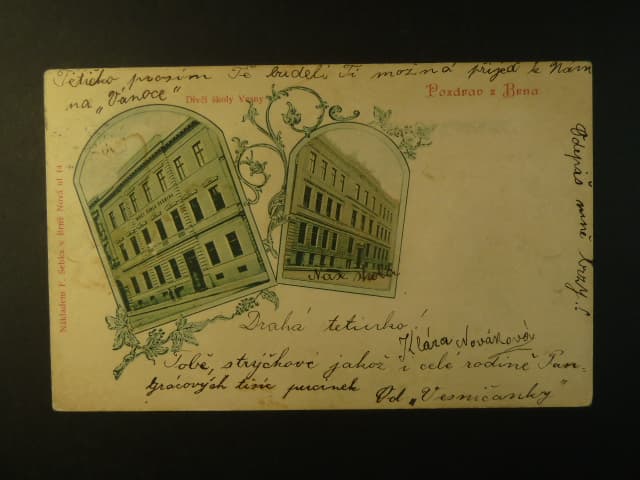 Tetičko prosím Tě budeli Ti možná přijeď k Nám
na „Vánoce"
Dívčí školy Vesny
Pozdrav z Brna
Nákladem F. Sebka v Brně Nová ul 14
Odepiš mně brzy!
Drahá tetičko!
Klára Nováková
Tobě, strýčkové jakož i celé rodině Pan-
grácových tisíc pusinek
Od „Vesničanky"